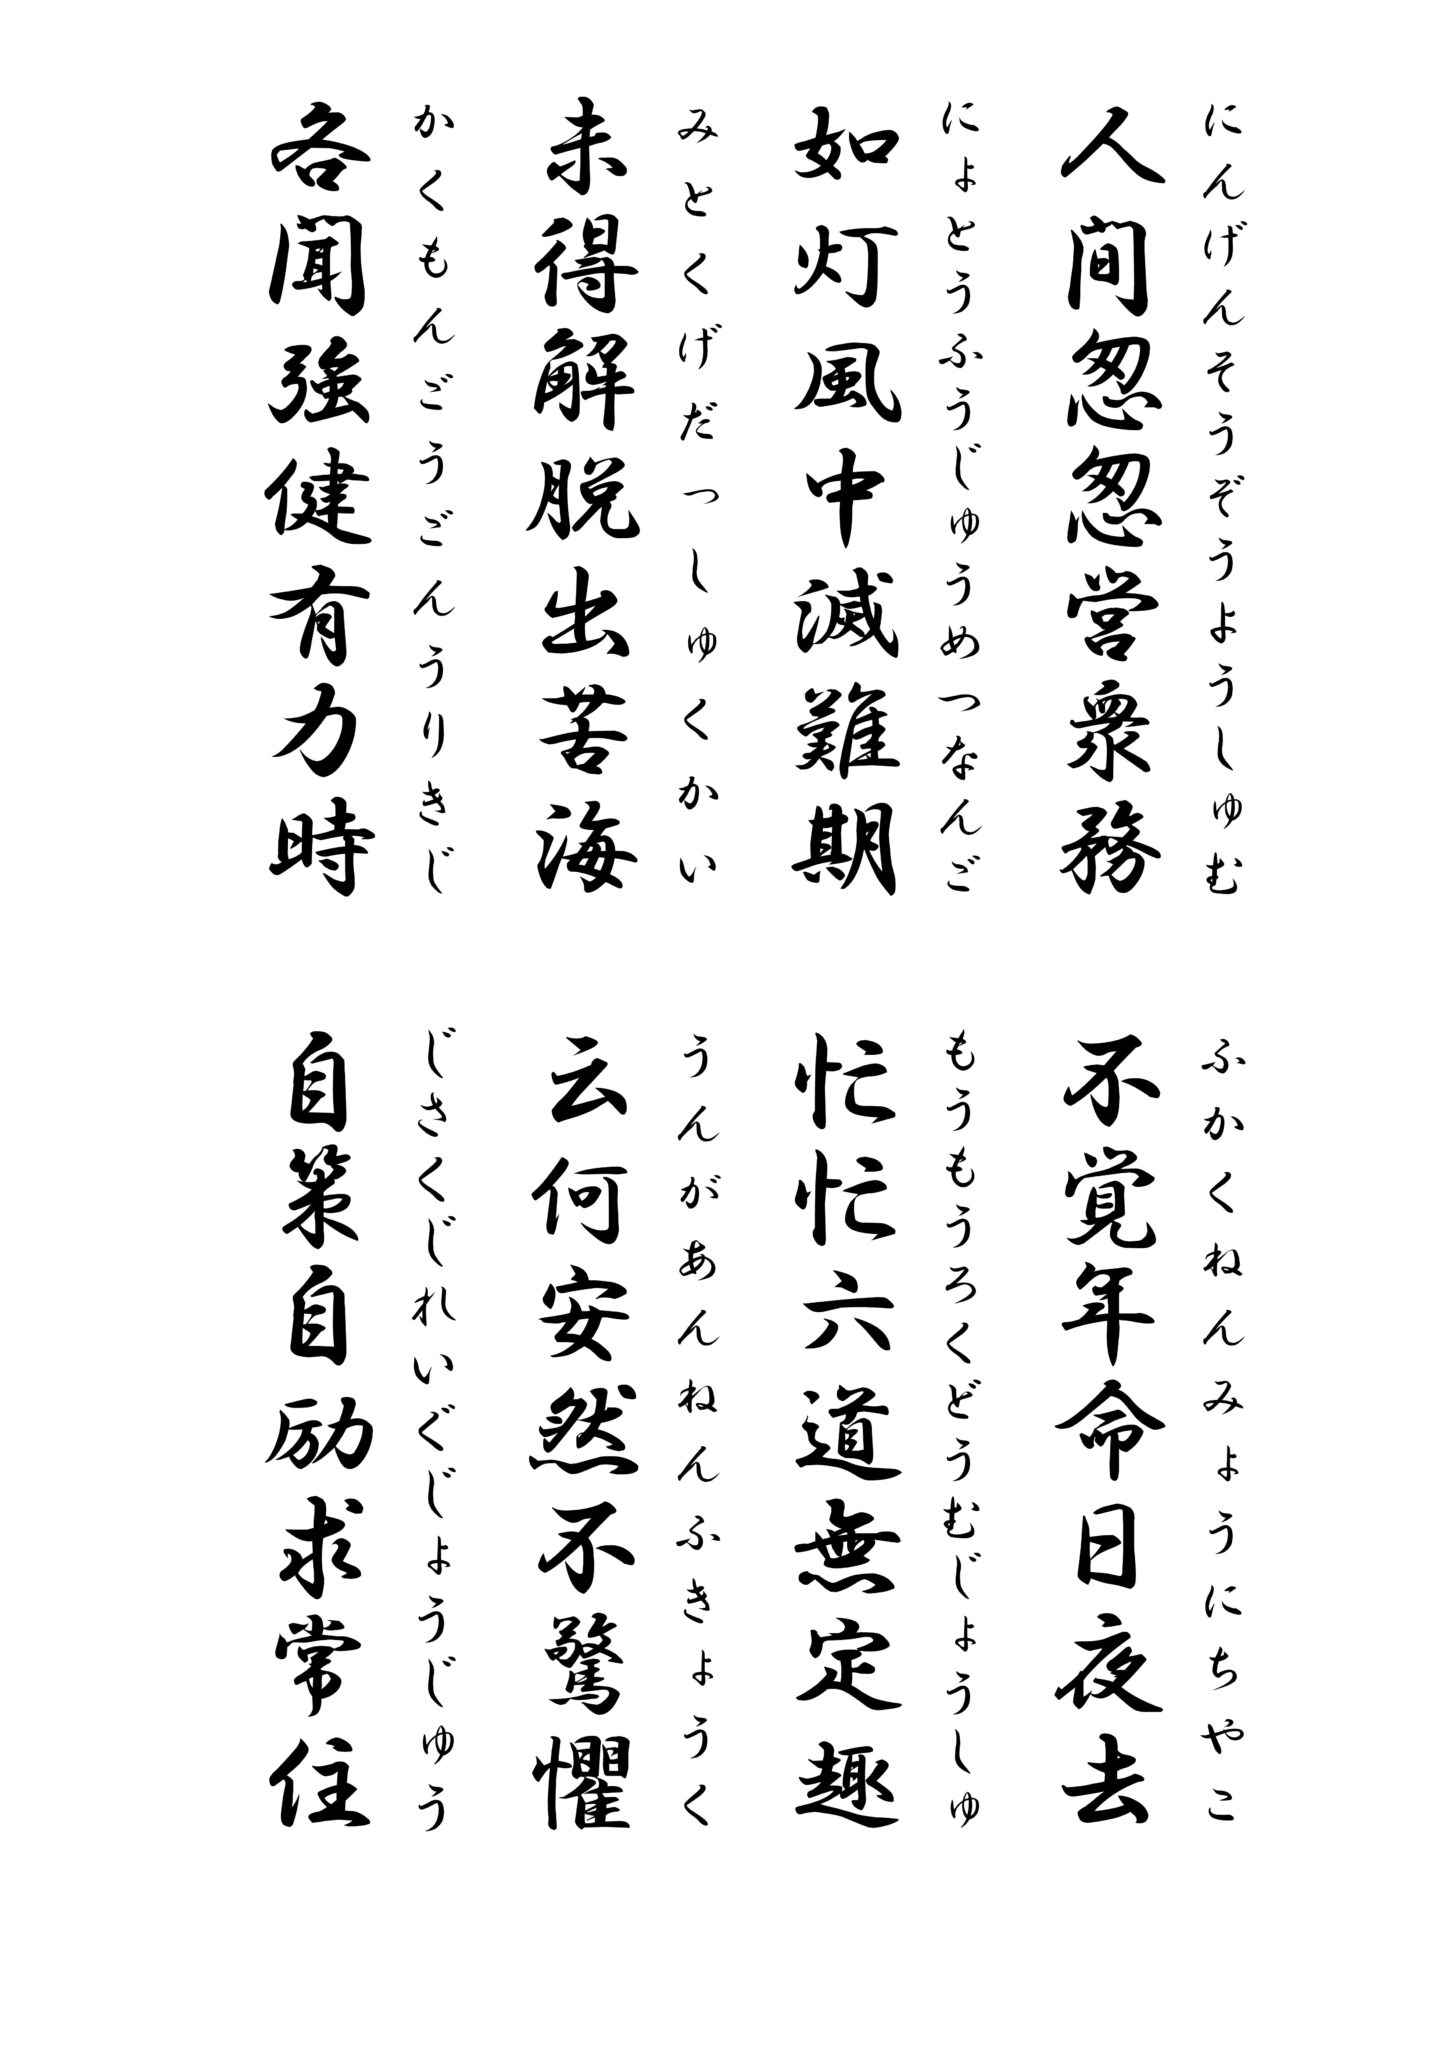 にんげんそうぞうようしゅむ
人間怱怱営衆務
ふかくねんみょうにちやこ
不覚年命日夜去
にょとうふうじゅうめつなんご
如灯風中滅難期
もうもうろくどうむじょうしゅ
忙忙六道無定趣
みとくげだっしゅくかい
未得解脱出苦海
うんがあんねんふきょうく
云何安然不驚懼
かくもんごうごんうりきじ
各聞強健有力時
じさくじれいぐじょうじゅう
自策自励求常住